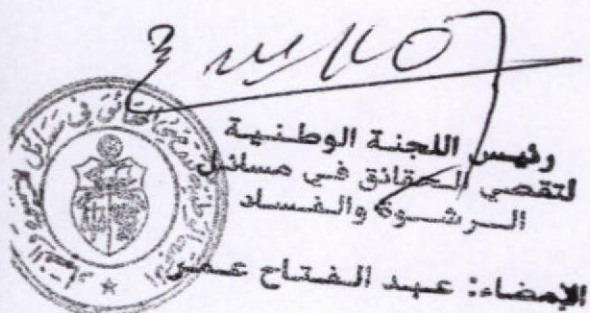 رئيس اللجنة الوطنية
لتقصي الحقائق في مسائل
الرشوة والفساد
الإمضاء: عبد الفتاح عمر